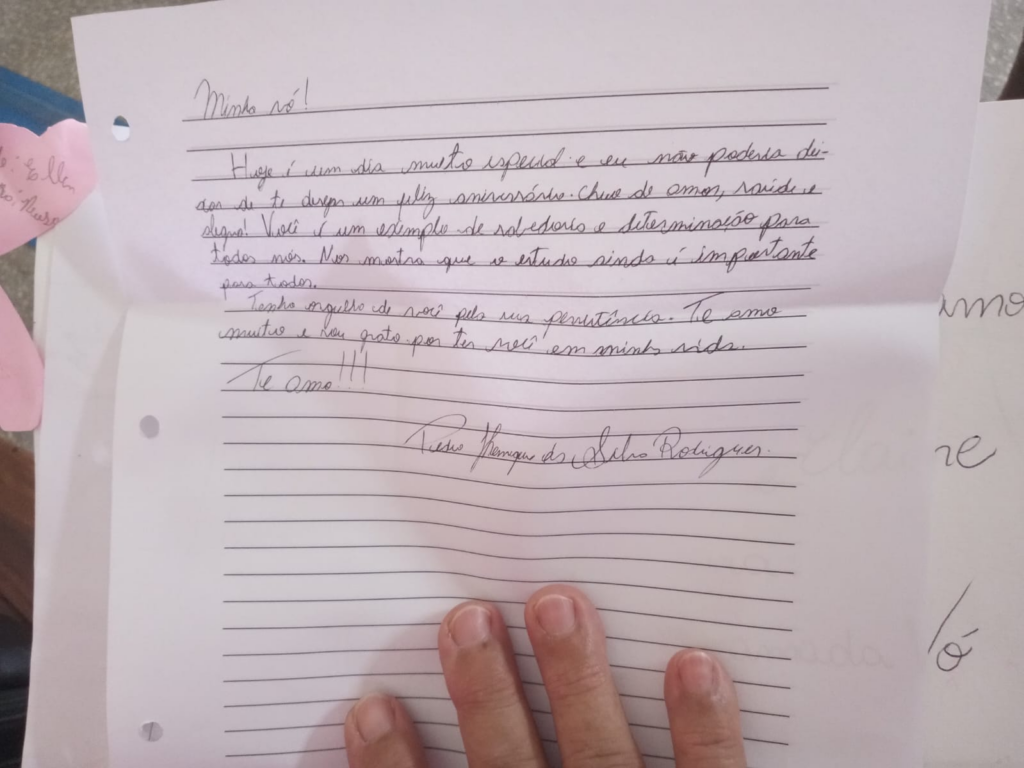 Minha vó!
Hoje é um dia muito especial e eu não poderia dei-
xar de te desejar um feliz aniversário. Cheio de amor, saúde e
alegria! Você é um exemplo de sabedoria e determinação para
todos nós. Nos mostra que o estudo ainda é importante
para todos.
Tenho orgulho de você pela sua persistência. Te amo
muito e sou grato por ter você em minha vida.
Te amo!!!
Pedro Henrique da Silva Rodrigues.
Ellen
amo
ne
vó